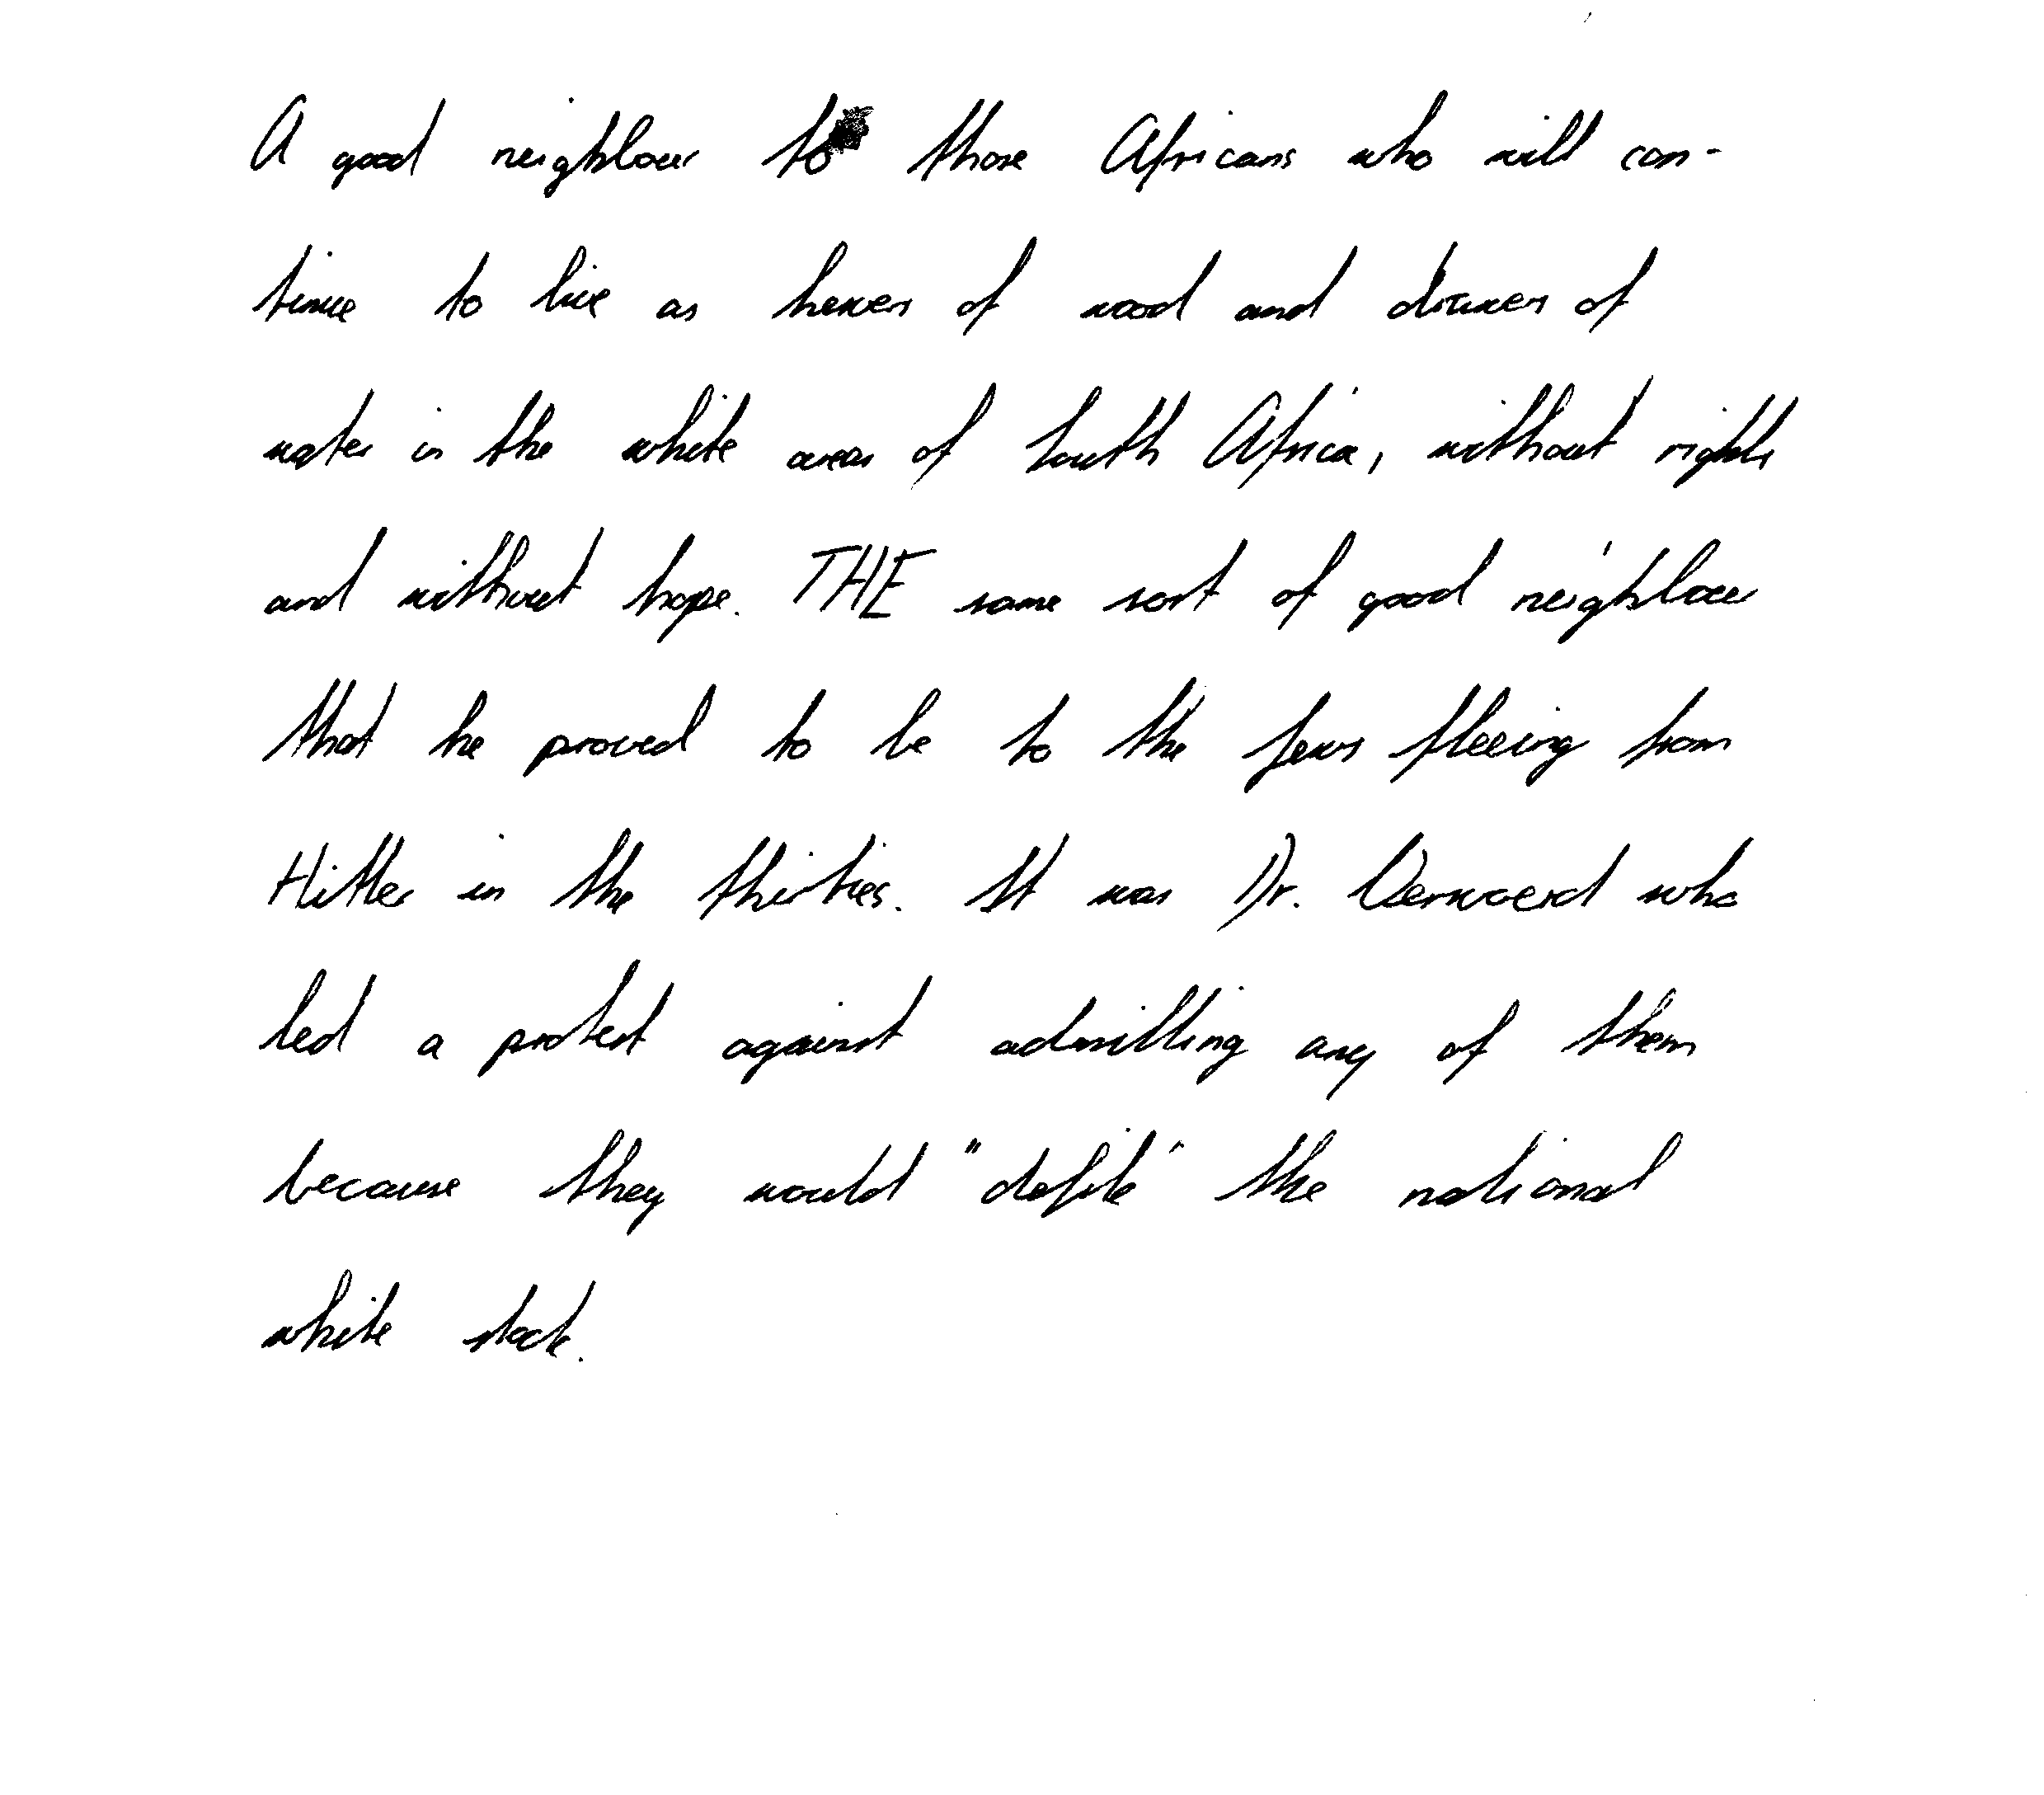 A good neighbour to those Africans who will con-
tinue to live as hewers of wood and drawers of
water in the white areas of South Africa, without rights
and without hope. THE same sort of good neighbour
that he proved to be to the Jews fleeing from
Hitler in the thirties. It was Dr. Verwoerd who
led a protest against admitting any of them
because they would "defile" the national
white stock.